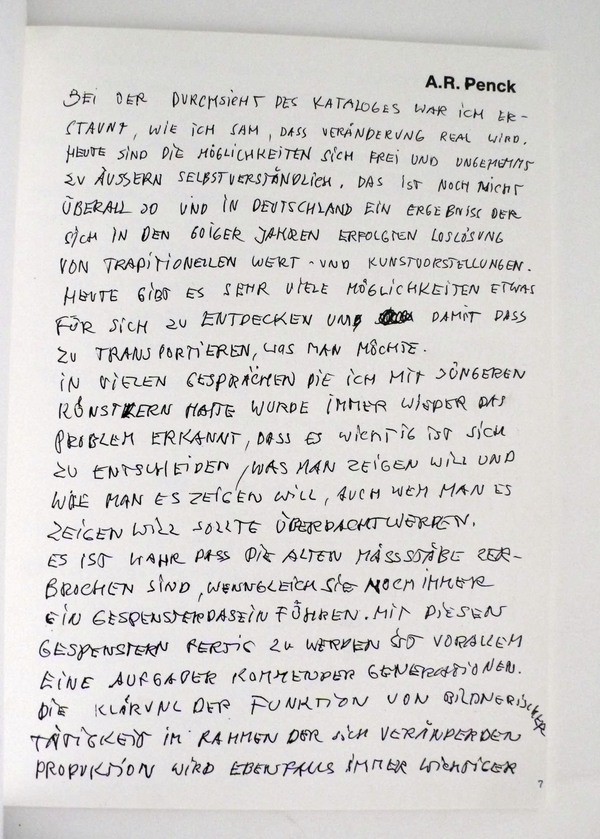 A.R. Penck
BEI DER DURCHSICHT DES KATALOGES WAR ICH ER-
STAUNT, WIE ICH SAH, DASS VERÄNDERUNG REAL WIRD.
HEUTE SIND DIE MÖGLICHKEITEN SICH FREI UND UNGEHEMMT
ZU ÄUSSERN SELBSTVERSTÄNDLICH. DAS IST NOCH NICHT
ÜBERALL SO UND IN DEUTSCHLAND EIN ERGEBNISS DER
SICH IN DEN 60IGER JAHREN ERFOLGTEN LOSLÖSUNG
VON TRADITIONELLEN WERT- UND KUNSTVORSTELLUNGEN.
HEUTE GIBT ES SEHR VIELE MÖGLICHKEITEN ETWAS
FÜR SICH ZU ENTDECKEN UND DAMIT DASS
ZU TRANSPORTIEREN, WAS MAN MÖCHTE.
IN VIELEN GESPRÄCHEN DIE ICH MIT JÜNGEREN
KÜNSTLERN HATTE WURDE IMMER WIEDER DAS
PROBLEM ERKANNT, DASS ES WICHTIG IST SICH
ZU ENTSCHEIDEN, WAS MAN ZEIGEN WILL UND
WIE MAN ES ZEIGEN WILL, AUCH WEM MAN ES
ZEIGEN WILL SOLLTE ÜBERDACHT WERDEN.
ES IST WAHR DASS DIE ALTEN MASSSTÄBE ZER-
BROCHEN SIND, WENNGLEICH SIE NOCH IMMER
EIN GESPENSTERDASEIN FÜHREN. MIT DIESEN
GESPENSTERN FERTIG ZU WERDEN IST VORALLEM
EINE AUFGABE KOMMENDER GENERATIONEN.
DIE KLÄRUNG DER FUNKTION VON BILDNERISCHER
TÄTIGKEIT IM RAHMEN DER SICH VERÄNDERDEN
PRODUKTION WIRD EBENFALLS IMMER WICHTIGER
7